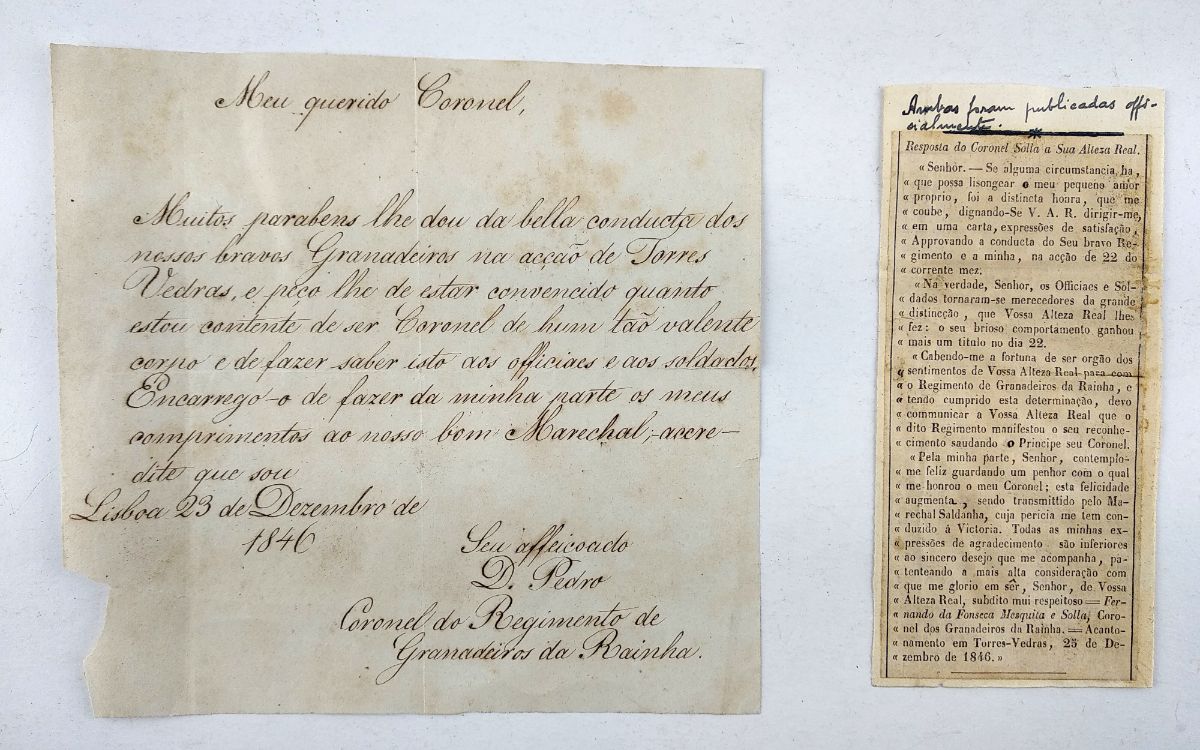 Meu querido Coronel,
Muitos parabens lhe dou da bella conducta dos
nossos bravos Granadeiros na acção de Torres
Vedras, e peço lhe de estar convencido quanto
estou contente de ser Coronel de hum tão valente
corpo e de fazer saber isto aos officiaes e aos soldados.
Encarrego-o de fazer da minha parte os meus
comprimentos ao nosso bom Marechal, accre-
dite que sou
Lisboa 23 de Dezembro de
1846
Seu affeicoado
D. Pedro
Coronel do Regimento de
Granadeiros da Rainha.
Ambas foram publicadas offi-
cialmente.
Resposta do Coronel Solla a Sua Alteza Real.
«Senhor. — Se alguma circumstancia ha,
« que possa lisongear o meu pequeno amor
« proprio, foi a distincta honra, que me
« coube, dignando-Se V. A. R. dirigir-me,
« em uma carta, expressões de satisfação,
« Approvando a conducta do Seu bravo Re-
« gimento e a minha, na acção de 22 do
« corrente mez.
«Na verdade, Senhor, os Officiaes e Sol-
« dados tornaram-se merecedores da grande
« distincção, que Vossa Alteza Real lhes
« fez: o seu brioso comportamento ganhou
« mais um titulo no dia 22.
«Cabendo-me a fortuna de ser orgão dos
« sentimentos de Vossa Alteza Real para com
« o Regimento de Granadeiros da Rainha, e
« tendo cumprido esta determinação, devo
« communicar a Vossa Alteza Real que o
« dito Regimento manifestou o seu reconhe-
« cimento saudando o Principe seu Coronel.
«Pela minha parte, Senhor, contemplo-
« me feliz guardando um penhor com o qual
« me honrou o meu Coronel; esta felicidade
« augmenta, sendo transmittido pelo Ma-
« rechal Saldanha, cuja pericia me tem con-
« duzido á Victoria. Todas as minhas ex-
« pressões de agradecimento são inferiores
« ao sincero desejo que me acompanha, pa-
« tenteando a mais alta consideração com
« que me glorio em sêr, Senhor, de Vossa
« Alteza Real, subdito mui respeitoso = Fer-
« nando da Fonseca Mesquita e Solla, Coro-
« nel dos Granadeiros da Rainha. = Acanto-
« namento em Torres-Vedras, 25 de De-
« zembro de 1846.»